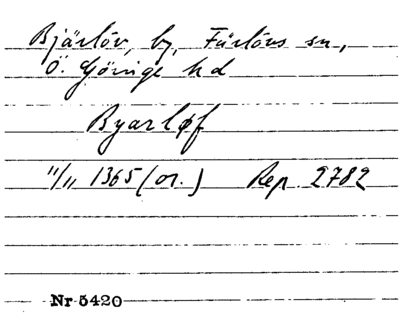 Bjärlöv, by, Färlövs sn,
Ö. Göinge hd
Byarløf
11/11 1365 (or.) Rep 2782
Nr 5420